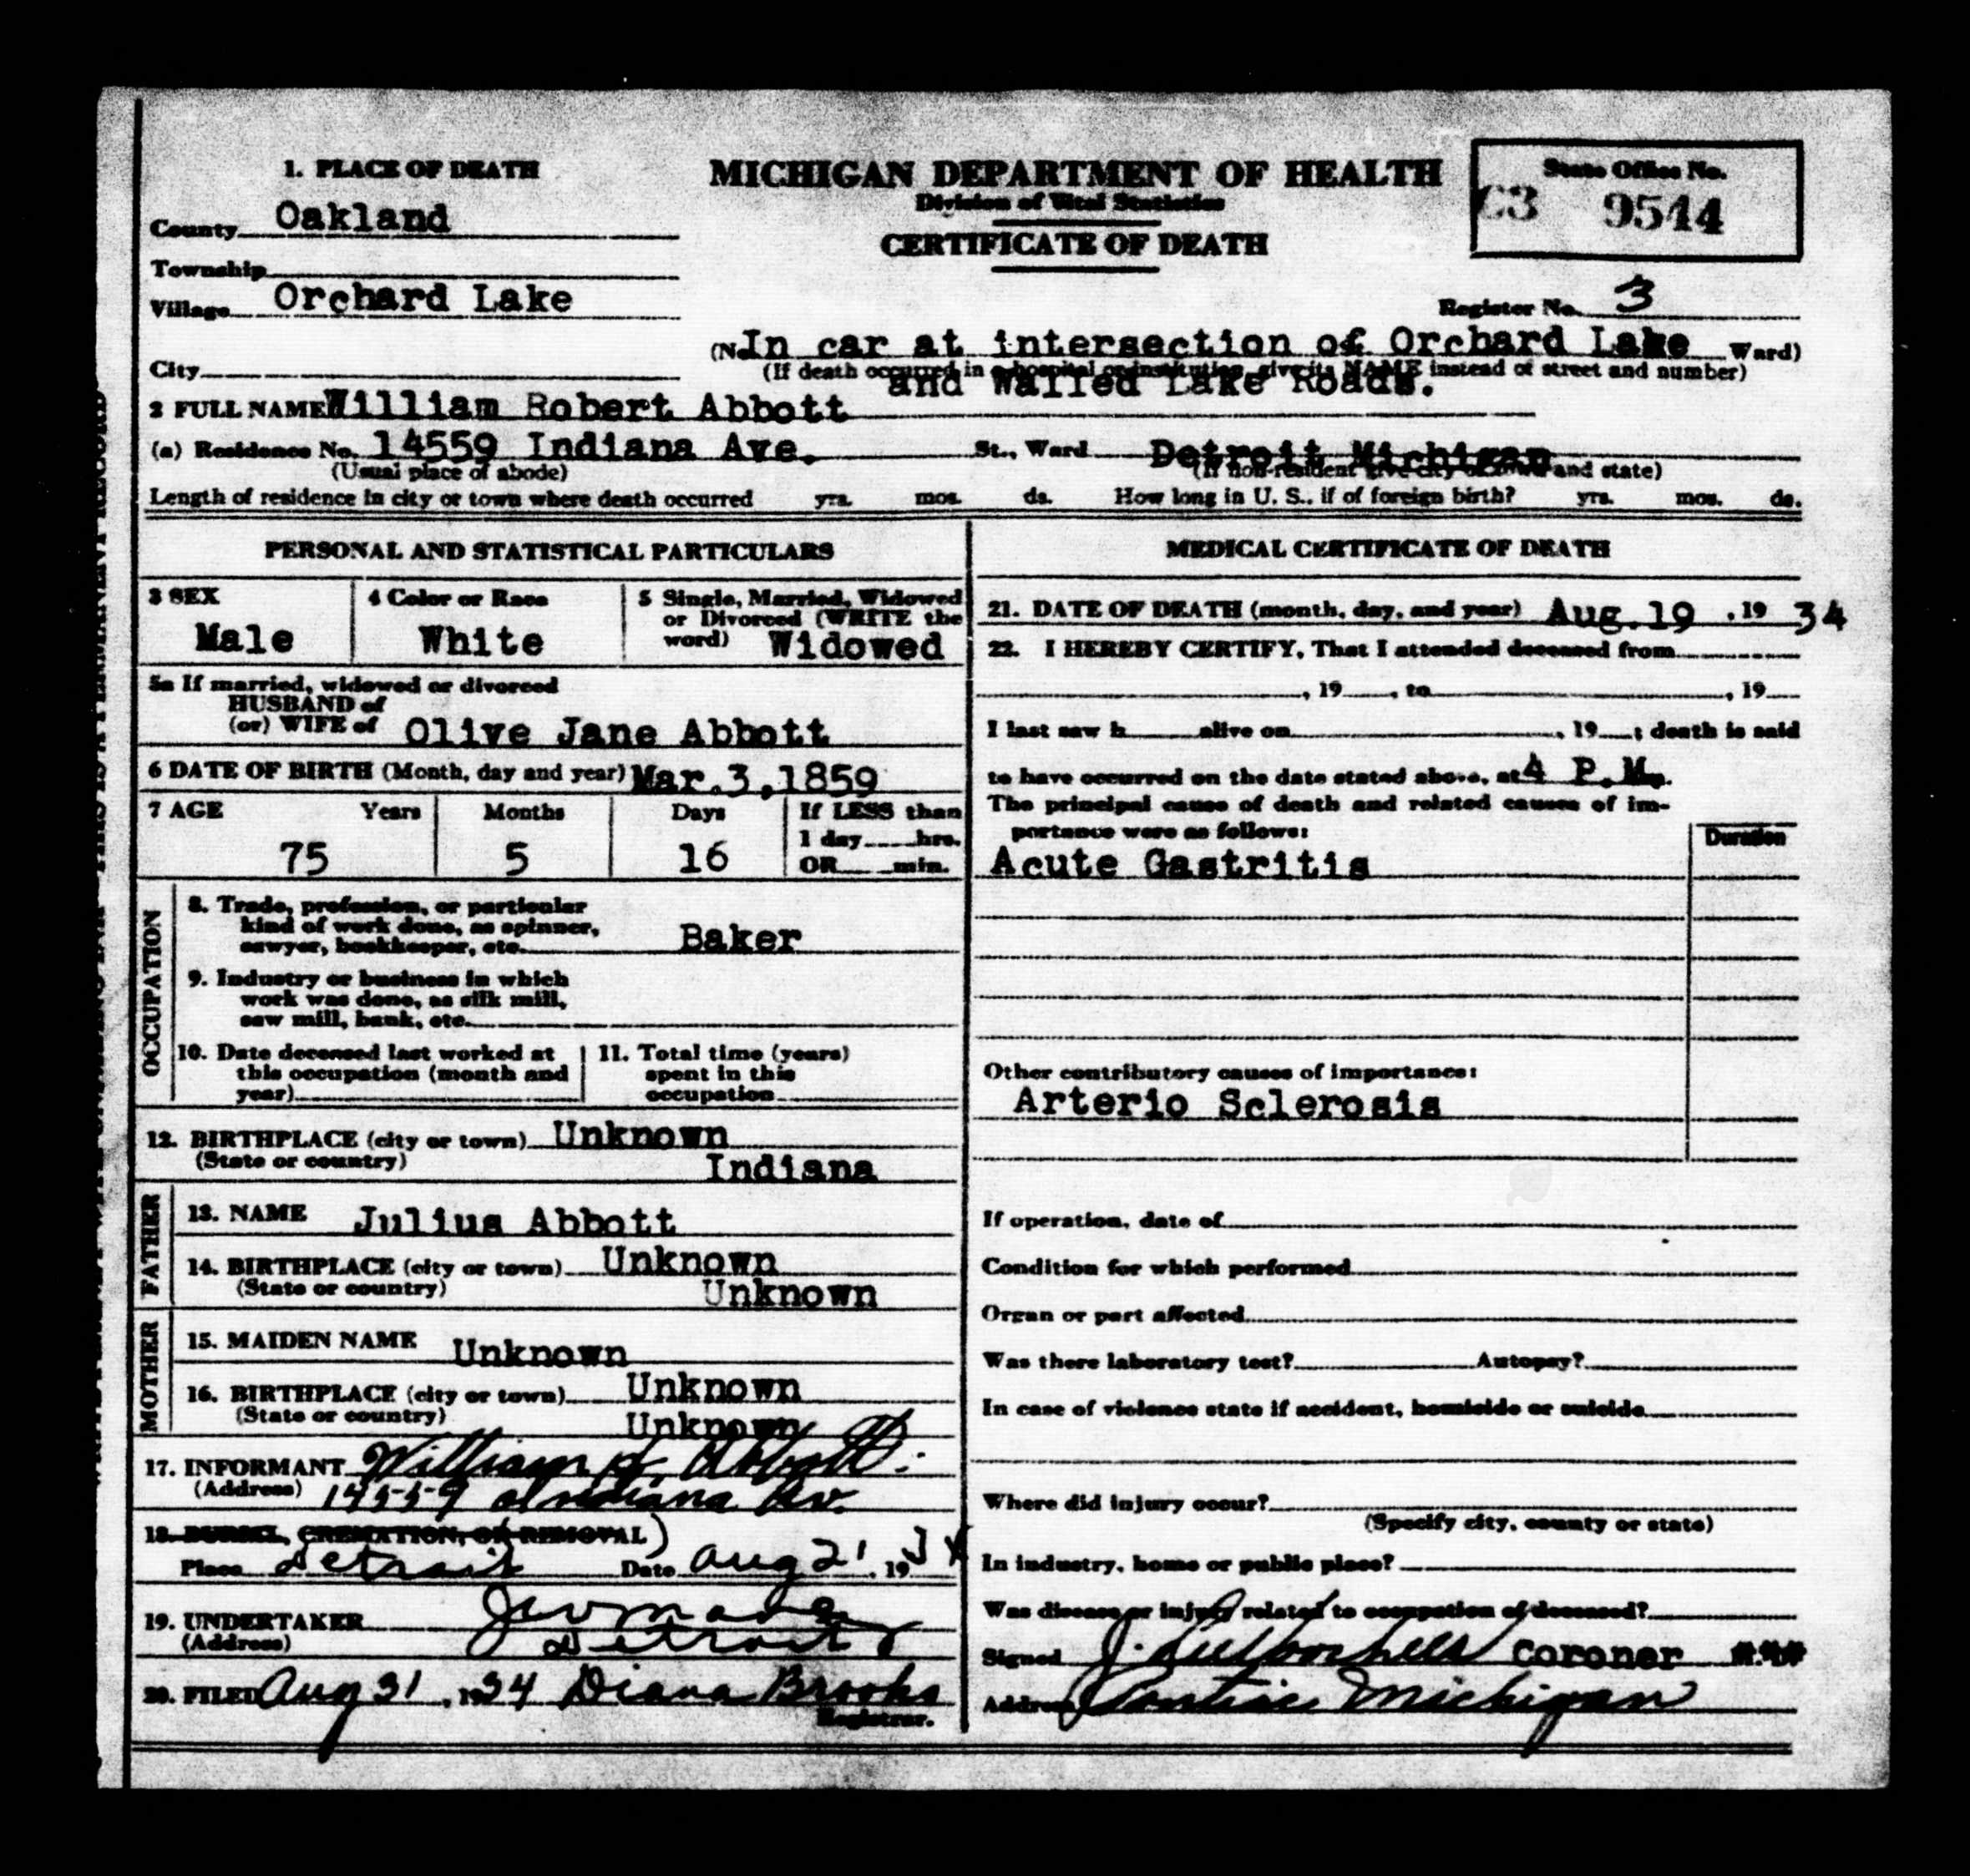 1. PLACE OF DEATH
County Oakland
Township
Village Orchard Lake
City
MICHIGAN DEPARTMENT OF HEALTH
Division of Vital Statistics
CERTIFICATE OF DEATH
State Office No.
63 9544
Register No. 3
(No. In car at intersection of Orchard Lake Ward)
(If death occurred in a hospital or institution, give its NAME instead of street and number)
and Walled Lake Roads.
2 FULL NAME William Robert Abbott
(a) Residence No. 14559 Indiana Ave. St., Ward Detroit Michigan
(Usual place of abode) (If non-resident give city or town and state)
Length of residence in city or town where death occurred yrs. mos. ds. How long in U. S., if of foreign birth? yrs. mos. ds.
PERSONAL AND STATISTICAL PARTICULARS
3 SEX
Male
4 Color or Race
White
5 Single, Married, Widowed
or Divorced (WRITE the
word) Widowed
5a If married, widowed or divorced
HUSBAND of
(or) WIFE of Olive Jane Abbott
6 DATE OF BIRTH (Month, day and year) Mar.3,1859
7 AGE Years Months Days If LESS than
1 day hrs.
75 5 16 OR min.
OCCUPATION
8. Trade, profession, or particular
kind of work done, as spinner,
sawyer, bookkeeper, etc. Baker
9. Industry or business in which
work was done, as silk mill,
saw mill, bank, etc.
10. Date deceased last worked at
this occupation (month and
year)
11. Total time (years)
spent in this
occupation
12. BIRTHPLACE (city or town) Unknown
(State or country) Indiana
FATHER
13. NAME Julius Abbott
14. BIRTHPLACE (city or town) Unknown
(State or country) Unknown
MOTHER
15. MAIDEN NAME Unknown
16. BIRTHPLACE (city or town) Unknown
(State or country) Unknown
17. INFORMANT William H. Abbott
(Address) 14559 Indiana Av.
18. BURIAL, CREMATION, OR REMOVAL
Place Detroit Date Aug 21, 1934
19. UNDERTAKER
(Address) Detroit
20. FILED Aug 31, 1934 Diana Brooks
Registrar.
MEDICAL CERTIFICATE OF DEATH
21. DATE OF DEATH (month, day, and year) Aug.19, 19 34
22. I HEREBY CERTIFY, That I attended deceased from
, 19 , to , 19
I last saw h alive on , 19 ; death is said
to have occurred on the date stated above, at 4 P.M.
The principal cause of death and related causes of im-
portance were as follows:
Duration
Acute Gastritis
Other contributory causes of importance:
Arterio Sclerosis
If operation, date of
Condition for which performed
Organ or part affected
Was there laboratory test? Autopsy?
In case of violence state if accident, homicide or suicide
Where did injury occur?
(Specify city, county or state)
In industry, home or public place?
Was disease or injury related to occupation of deceased?
Signed J. Lee Voorhees Coroner
Address Pontiac Michigan